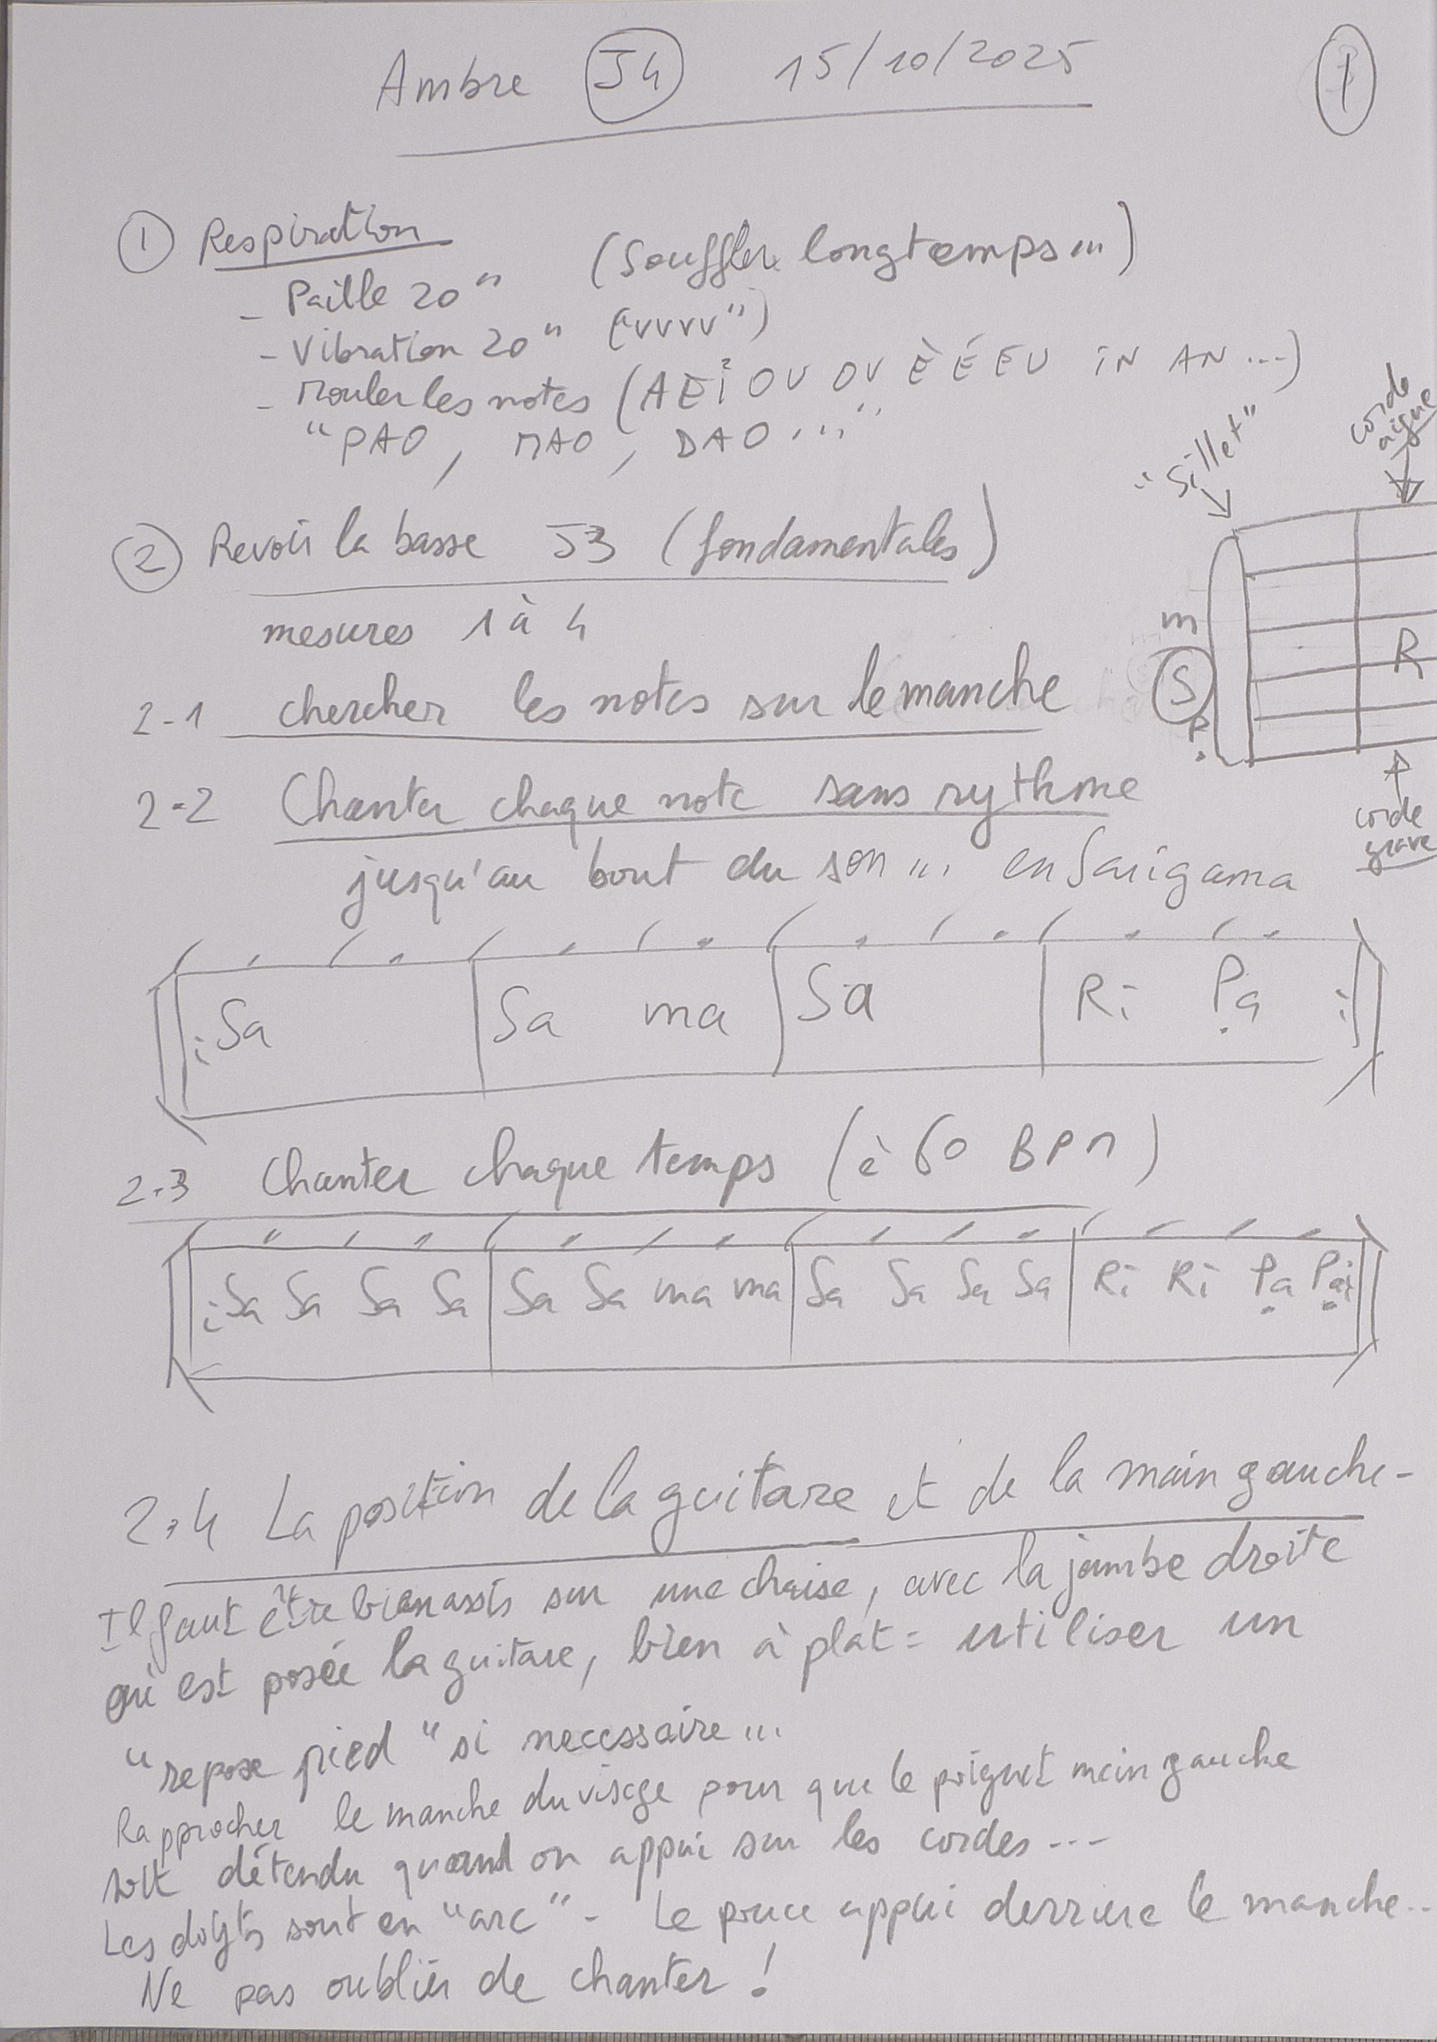 Ambre J4 15/10/2025
1
① Respiration
- Paille 20" (Souffler longtemps...)
- Vibration 20" ("vvvv")
- Rouler les notes (A E I O U OU È É EU IN AN ...)
"PAO, MAO, DAO..."
"Sillet"
corde
aigue
② Revoir la basse J3 (fondamentales)
mesures 1 à 4
m
S R
P.
2-1 chercher les notes sur le manche
2-2 Chanter chaque note sans rythme
corde
grave
jusqu'au bout du son ... en Sarigama
: Sa | Sa ma | Sa | Ri Pa :
2.3 Chanter chaque temps (à 60 BPM)
: Sa Sa Sa Sa | Sa Sa ma ma | Sa Sa Sa Sa | Ri Ri Pa Pa :
2.4 La position de la guitare et de la main gauche -
Il faut être bien assis sur une chaise, avec la jambe droite
où est posée la guitare, bien à plat = utiliser un
"repose pied" si necessaire...
Rapprocher le manche du visage pour que le poignet main gauche
soit détendu quand on appui sur les cordes ...
Les doigts sont en "arc" - Le pouce appui derriere le manche..
Ne pas oublier de chanter !